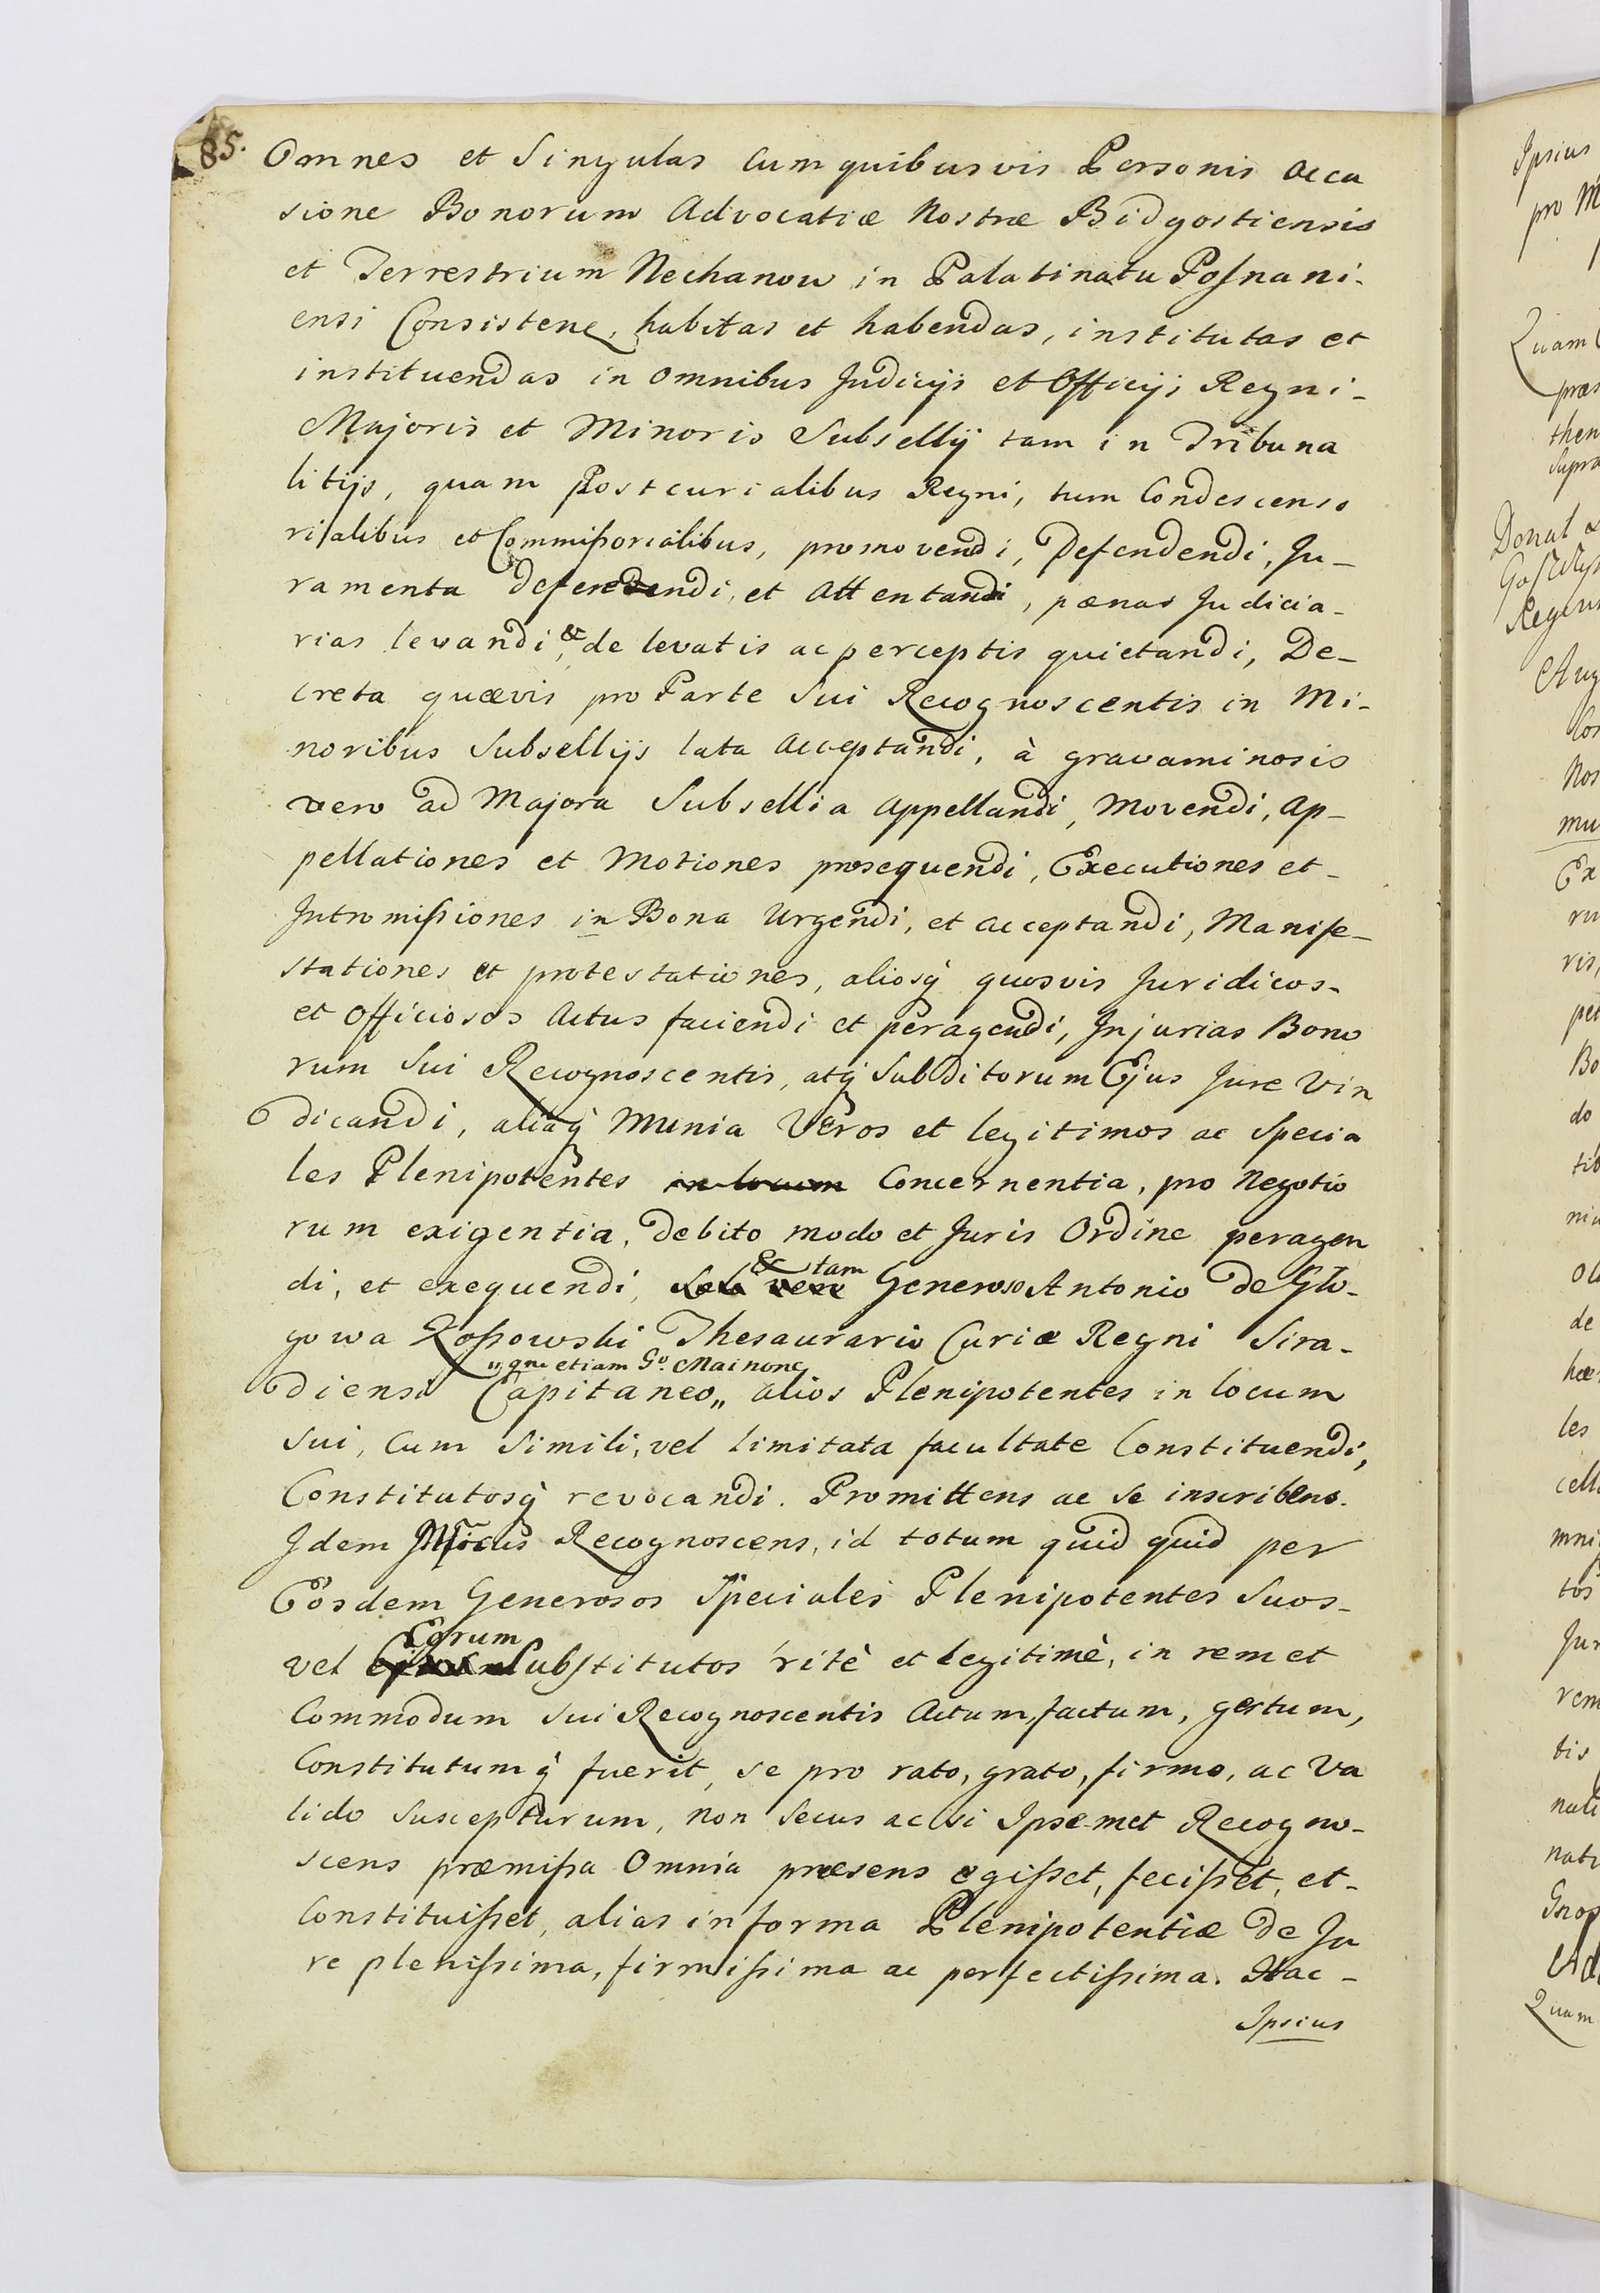 85.
Omnes et Singulas Cum quibusvis Personis occa
sione Bonorum Advocatiæ Nostræ Bidgostiensis
et Terrestrium Nechanow in Palatinatu Posnani-
ensi Consisten, habitas et habendas, institutas et
instituendas in omnibus Judicijs et Officijs Regni-
Majoris et Minoris Subsellij tam in Tribuna
litijs, quam Postcurialibus Regni, tum Condescenso
rialibus et Commissorialibus, promovendi, Defendendi, Ju-
ramenta deferendi, et Attentandi, pænas Judicia-
rias levandi, & de levatis ac perceptis quietandi, De-
creta quævis pro Parte Sui Recognoscentis in Mi-
noribus Subsellijs lata Acceptandi, à gravaminosis
vero ad Majora Subsellia Appellandi, Movendi, Ap-
pellationes et Motiones prosequendi, Executiones et-
Intromissiones in Bona Urgendi, et acceptandi, Manife-
stationes et protestationes, aliosq́ quosvis Juridicos-
et Officiosos Actus faciendi et peragendi, Injurias Bono
rum Sui Recognoscentis, atq́ Subditorum Ejus Jure Vin
dicandi, aliaq́ Munia Veros et legitimos ac Specia
les Plenipotentes in locum Concernentia, pro Negotio
rum exigentia, debito modo et Juris Ordine peragen
di, et exequendi, & tam Generoso Antonio de Glo-
gowa Kossowski Thesaurario Curiæ Regni Sira-
" qm etiam Go. Mainone
diensi Capitaneo „ alios Plenipotentes in locum
Sui, Cum Simili, vel limitata facultate Constituendi,
Constitutosq́ revocandi. Promittens ac Se inscribens.
Idem Recognoscens, id totum quid quid per
Eosdem Generosos Speciales Plenipotentes Suos-
vel Eorum Substitutos ritè et legitimè, in rem et
Commodum Sui Recognoscentis Actum, factum, gestum,
Constitutumq́ fuerit, se pro rato, grato, firmo, ac Va
lido Suscepturum, non Secus ac si Ipsemet Recogno-
scens præmissa Omnia præsens egisset, fecisset, et-
Constituisset, alias in forma Plenipotentiæ de Ju
re plenissima, firmissima ac perfectissima. Hac-
Ipsius
Ipsius
pro M
Quam
præs
then
Supra
Donat
Regen
Aug
Con
Nos
mu
Ex
ru
ris,
pet
Bo
do
tib
niu
ol
de
hæ
les
cell
mni
tos
Jur
rem
tis
nati
natu
Gros
Ad
Quam